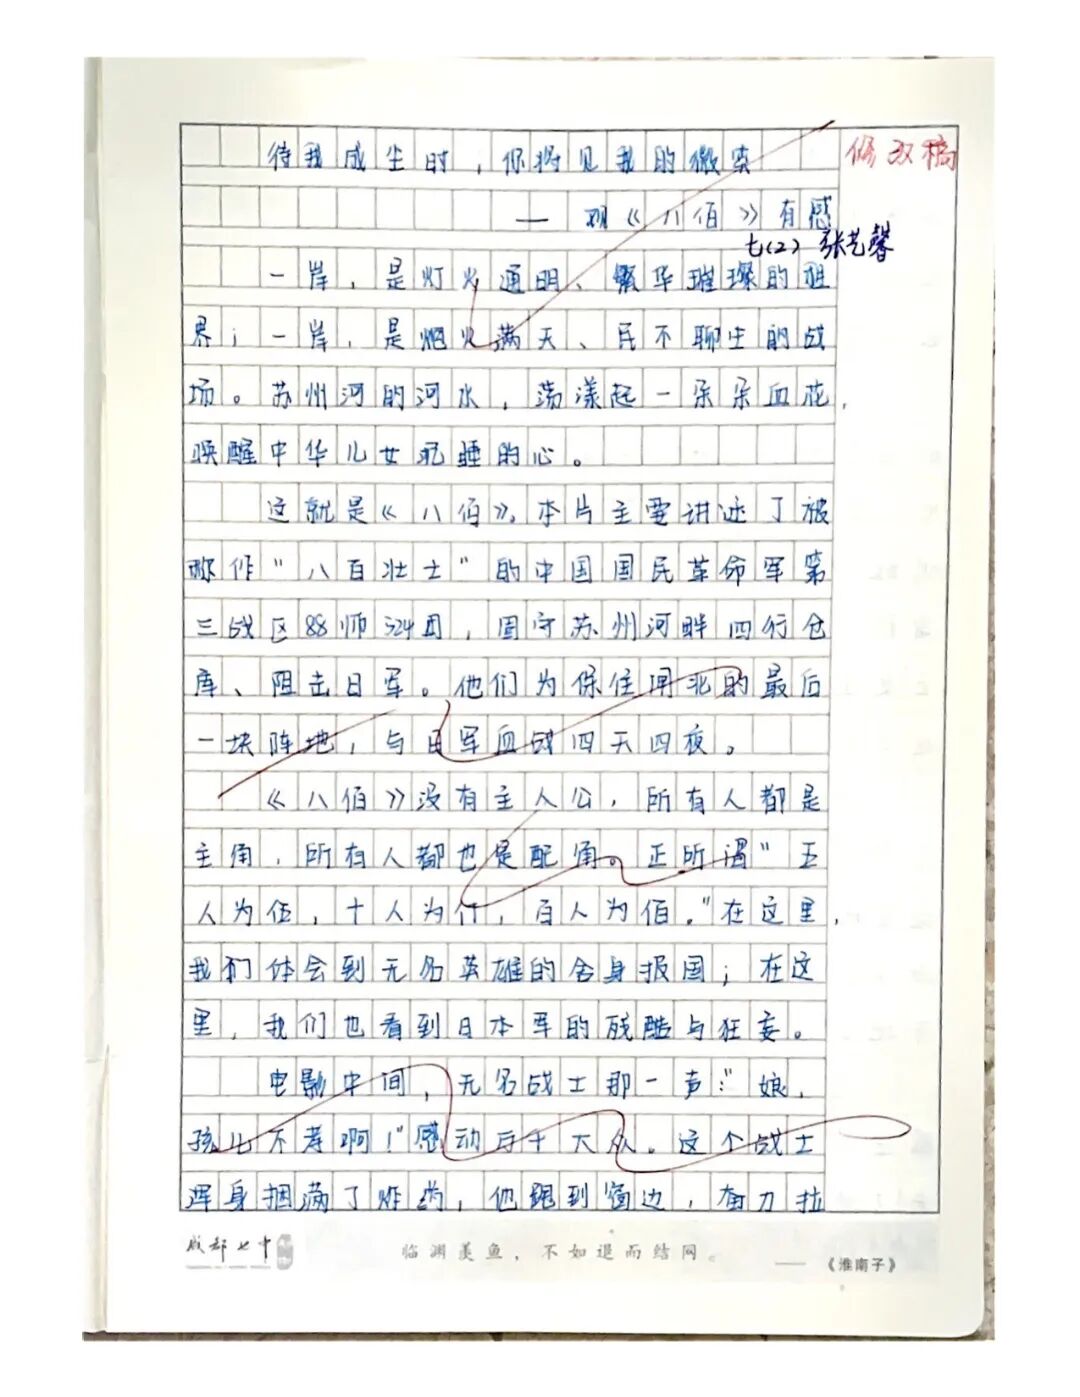 待我成尘时，你将见我的微笑
修改稿
——观《八佰》有感
七(2) 张艺馨
一岸，是灯火通明、繁华璀璨的租
界；一岸，是烟火满天、民不聊生的战
场。苏州河的河水，荡漾起一朵朵血花，
唤醒中华儿女沉睡的心。
这就是《八佰》。本片主要讲述了被
称作“八百壮士”的中国国民革命军第
三战区88师524团，固守苏州河畔四行仓
库、阻击日军。他们为保住闸北的最后
一块阵地，与日军血战四天四夜。
《八佰》没有主人公，所有人都是
主角，所有人都也是配角。正所谓“五
人为伍，十人为什，百人为佰。”在这里，
我们体会到无名英雄的舍身报国；在这
里，我们也看到日本军的残酷与狂妄。
电影中间，无名战士那一声：“娘，
孩儿不孝啊！”感动万千大众。这个战士
浑身捆满了炸药，他跑到窗边，奋力拉
成都七中
临渊羡鱼，不如退而结网。
——《淮南子》